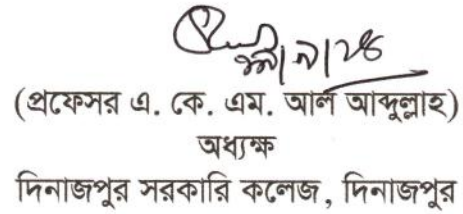 (প্রফেসর এ. কে. এম. আল আব্দুল্লাহ)
অধ্যক্ষ
দিনাজপুর সরকারি কলেজ, দিনাজপুর